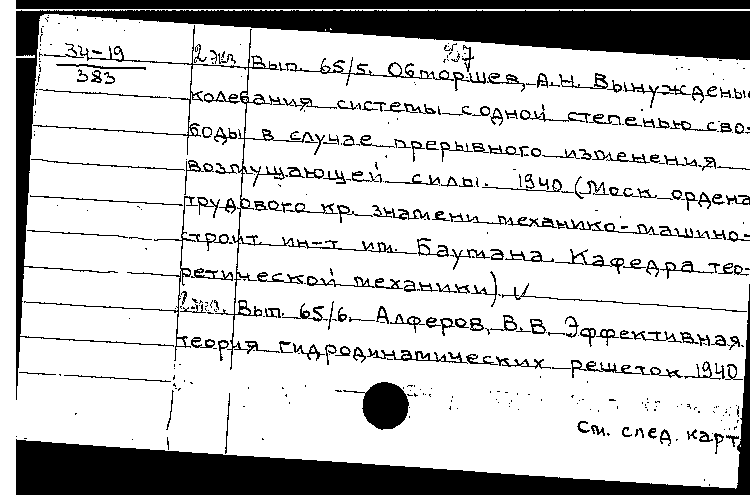 27
34-19
383
2 экз Вып. 65/5. Обморшев, А.Н. Вынуждены
колебания системы с одной степенью сво-
боды в случае прерывного изменения
возмущающей силы. 1940 (Моск. ордена
трудового кр. знамени механико-машино-
строит. ин-т им. Баумана. Кафедра тео-
ретической механики). V
2 экз. Вып. 65/6. Алферов, В.В. Эффективная
теория гидродинамических решеток 1940
См. след. карт.